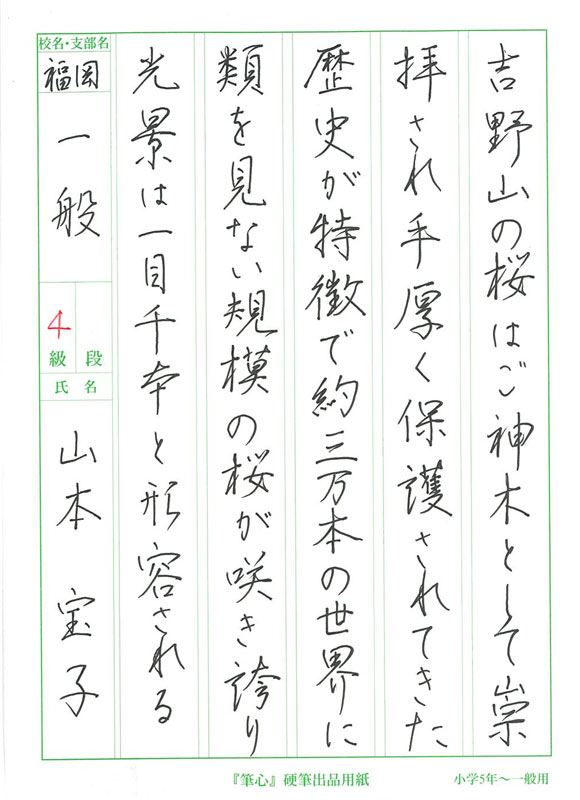 吉野山の桜はご神木として崇
拝され手厚く保護されてきた
歴史が特徴で約三万本の世界に
類を見ない規模の桜が咲き誇り
光景は一目千本と形容される
校名・支部名
福岡
一般
4
級 段
氏名
山本 宝子
『筆心』硬筆出品用紙
小学5年～一般用